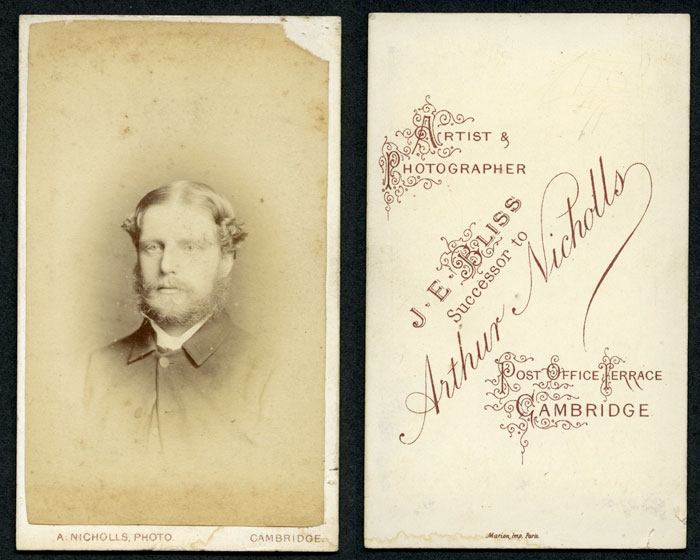 A. NICHOLLS, PHOTO. CAMBRIDGE.
ARTIST &
PHOTOGRAPHER
J. E. BLISS
Successor to
Arthur Nicholls
POST OFFICE TERRACE
CAMBRIDGE
Marion, Imp. Paris